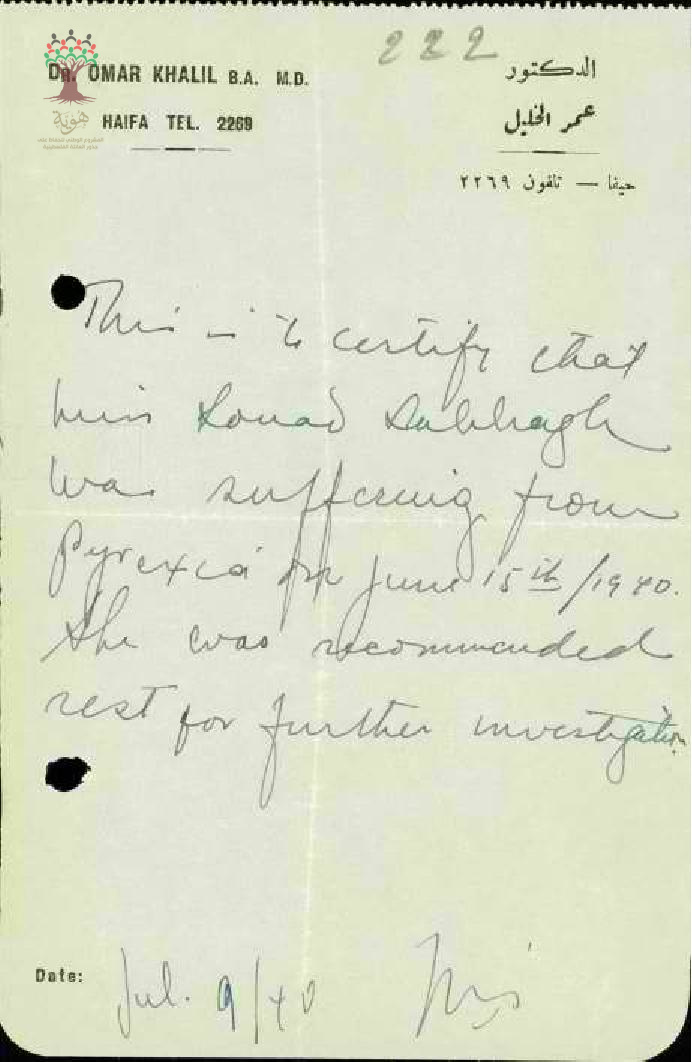 222
Dr. OMAR KHALIL B.A. M.D.
HAIFA TEL. 2269
الدكتور
عمر الخليل
حيفا — تلفون ٢٢٦٩
هوية
This is to certify that
Miss Souad Sabbagh
was suffering from
Pyrexia on June 15th/1940.
She was recommended
rest for further investigation
Date: Jul. 9/40